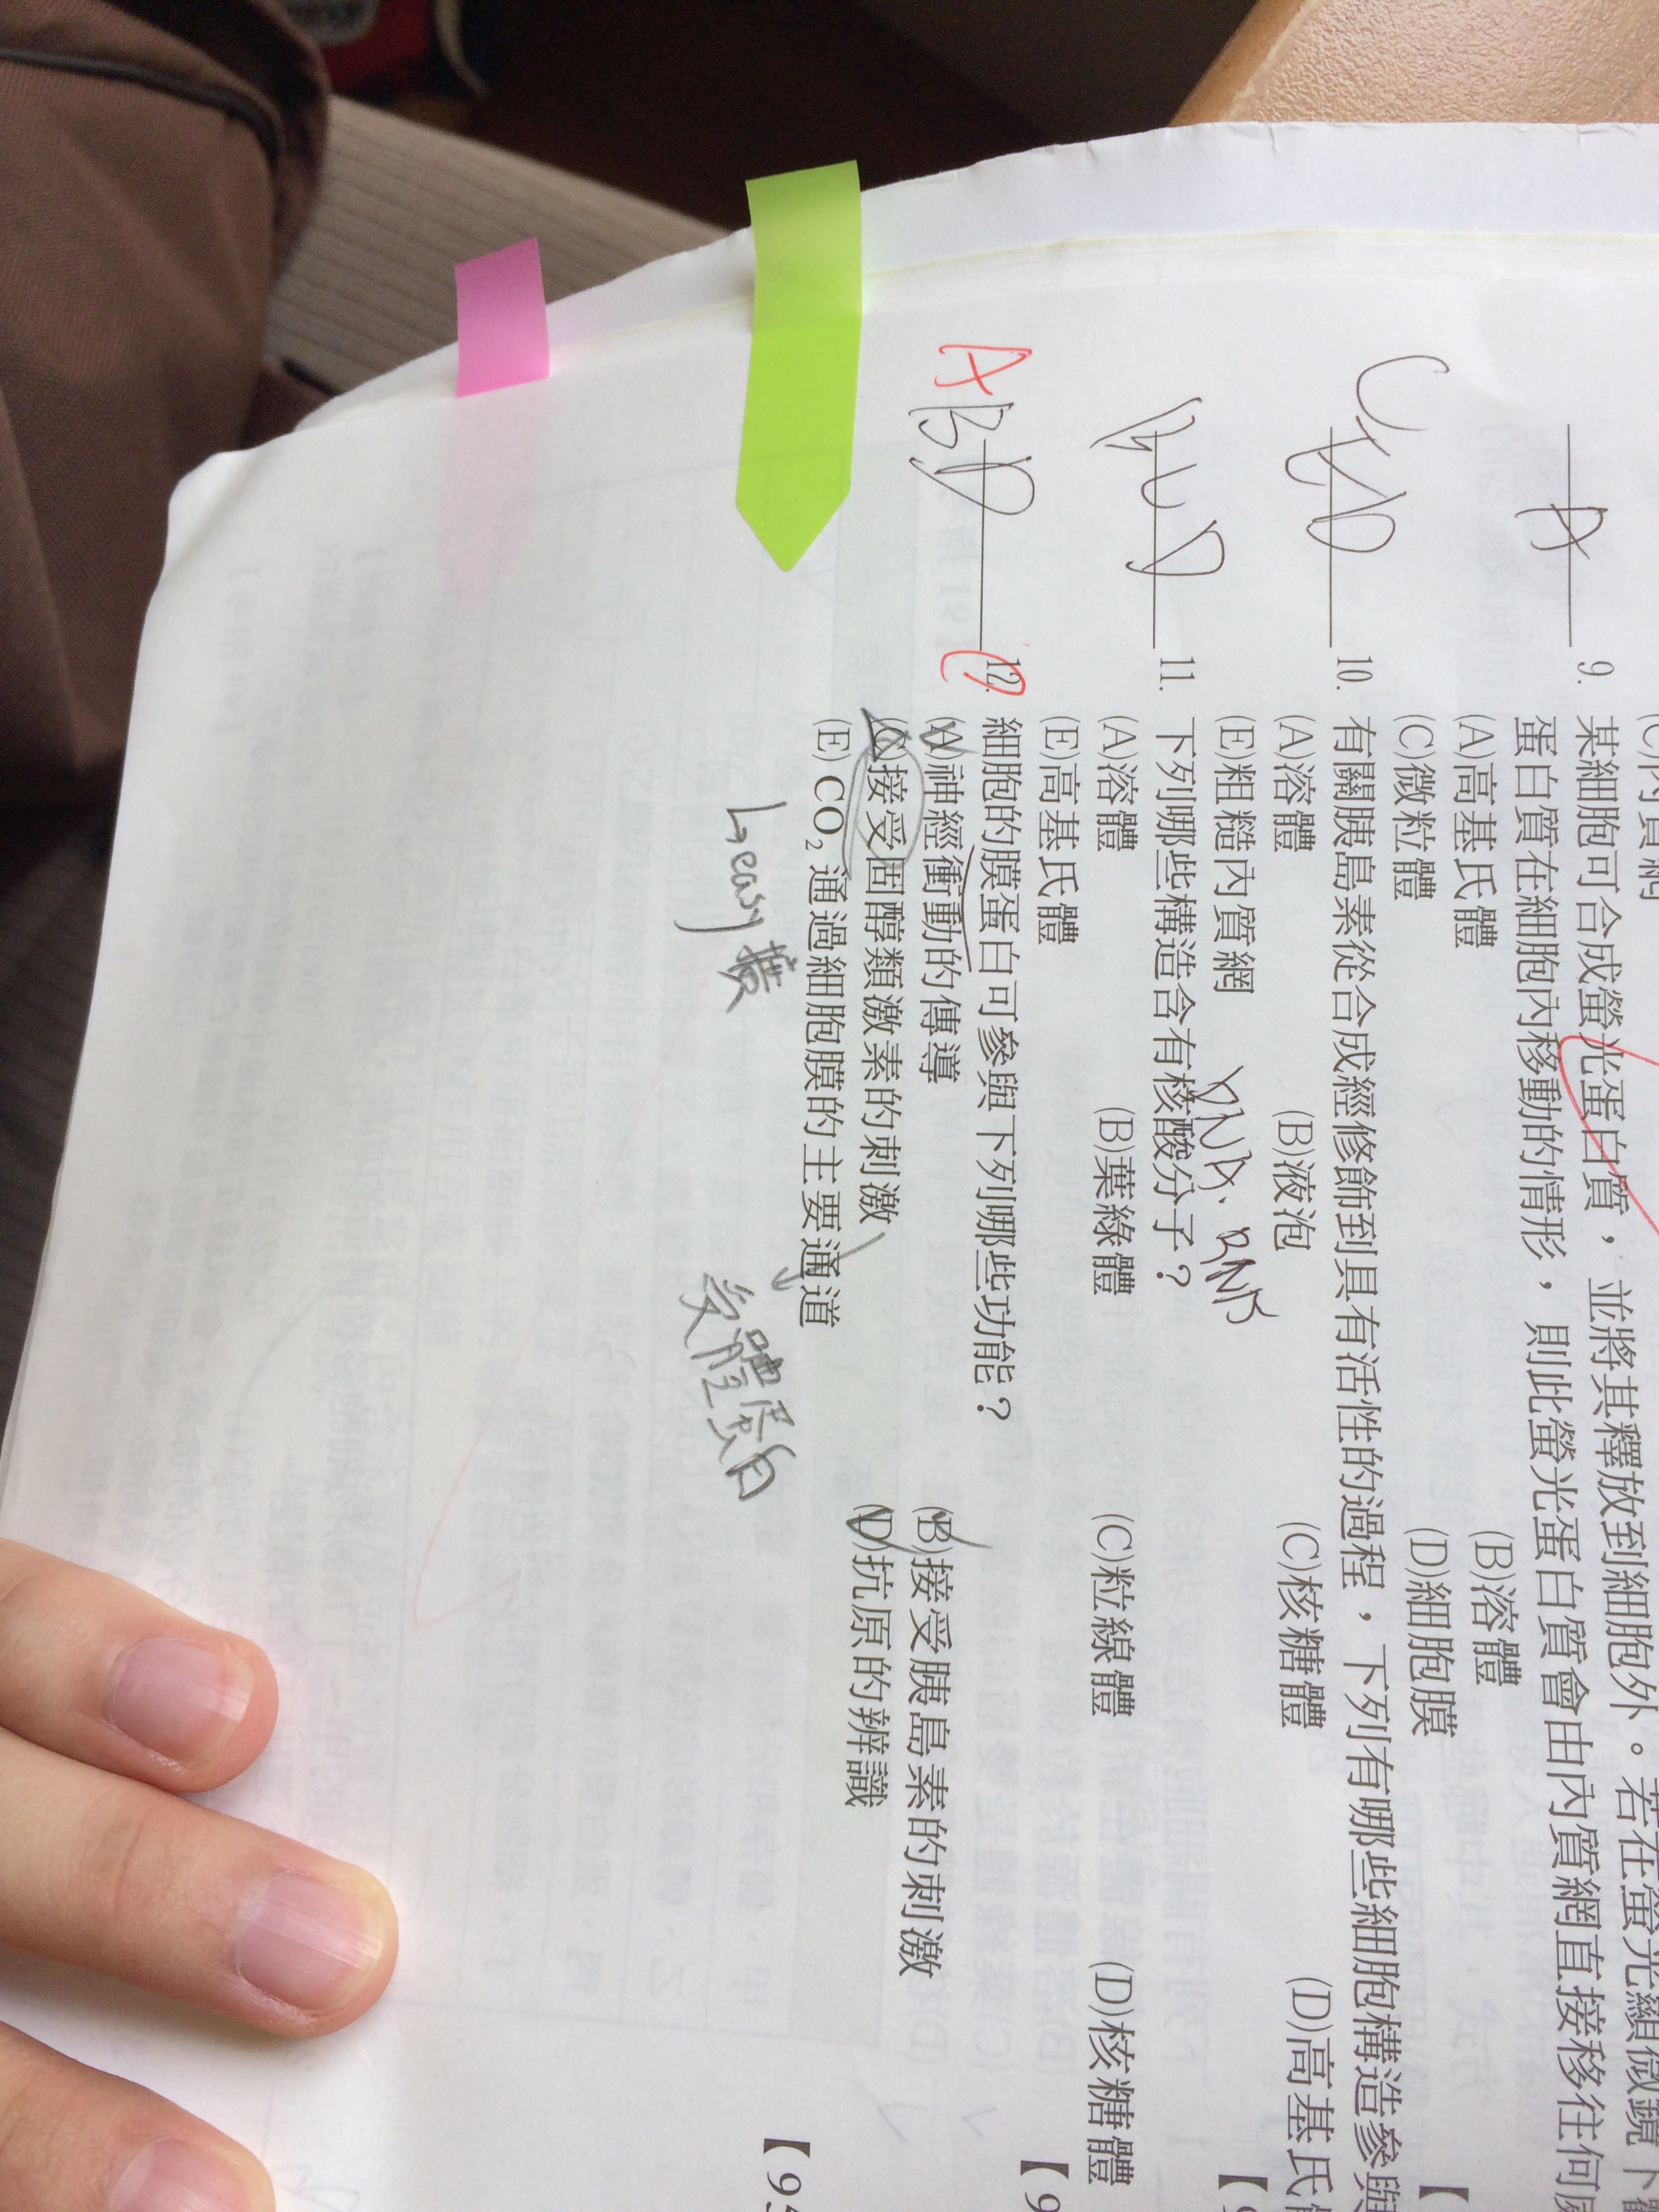 (C)內質網
A 9. 某細胞可合成螢光蛋白質，並將其釋放到細胞外。若在螢光顯微鏡下
蛋白質在細胞內移動的情形，則此螢光蛋白質會由內質網直接移往何
(A)高基氏體 (B)溶體
(C)微粒體 (D)細胞膜
【
10. 有關胰島素從合成經修飾到具有活性的過程，下列有哪些細胞構造參與
(A)溶體 (B)液泡 (C)核糖體 (D)高基氏
(E)粗糙內質網
【9
DNA、RNA
11. 下列哪些構造含有核酸分子？
(A)溶體 (B)葉綠體 (C)粒線體 (D)核糖體
(E)高基氏體
【9
ABD 12. 細胞的膜蛋白可參與下列哪些功能？
(A)神經衝動的傳導 (B)接受胰島素的刺激
(C)接受固醇類激素的刺激 (D)抗原的辨識
(E) CO₂通過細胞膜的主要通道
【95
↳easy
受體蛋白